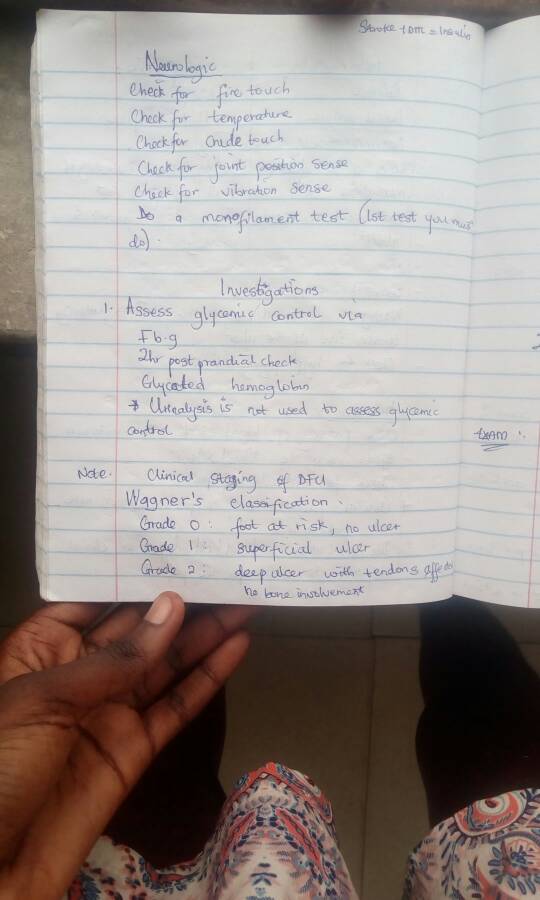 Stroke + DM = Insulin
Neurologic
Check for fine touch
Check for temperature
Check for Crude touch
Check for joint position sense
Check for vibration sense
Do a monofilament test (1st test you must
do).
Investigations
1. Assess glycemic control via
Fb.g
2hr post prandial check
Glycated hemoglobin
* Urinalysis is not used to assess glycemic
control
EXAM:
Note. Clinical staging of DFU
Wagner's classification.
Grade 0: foot at risk, no ulcer
Grade 1: superficial ulcer
Grade 2: deep ulcer with tendons affected
no bone involvement